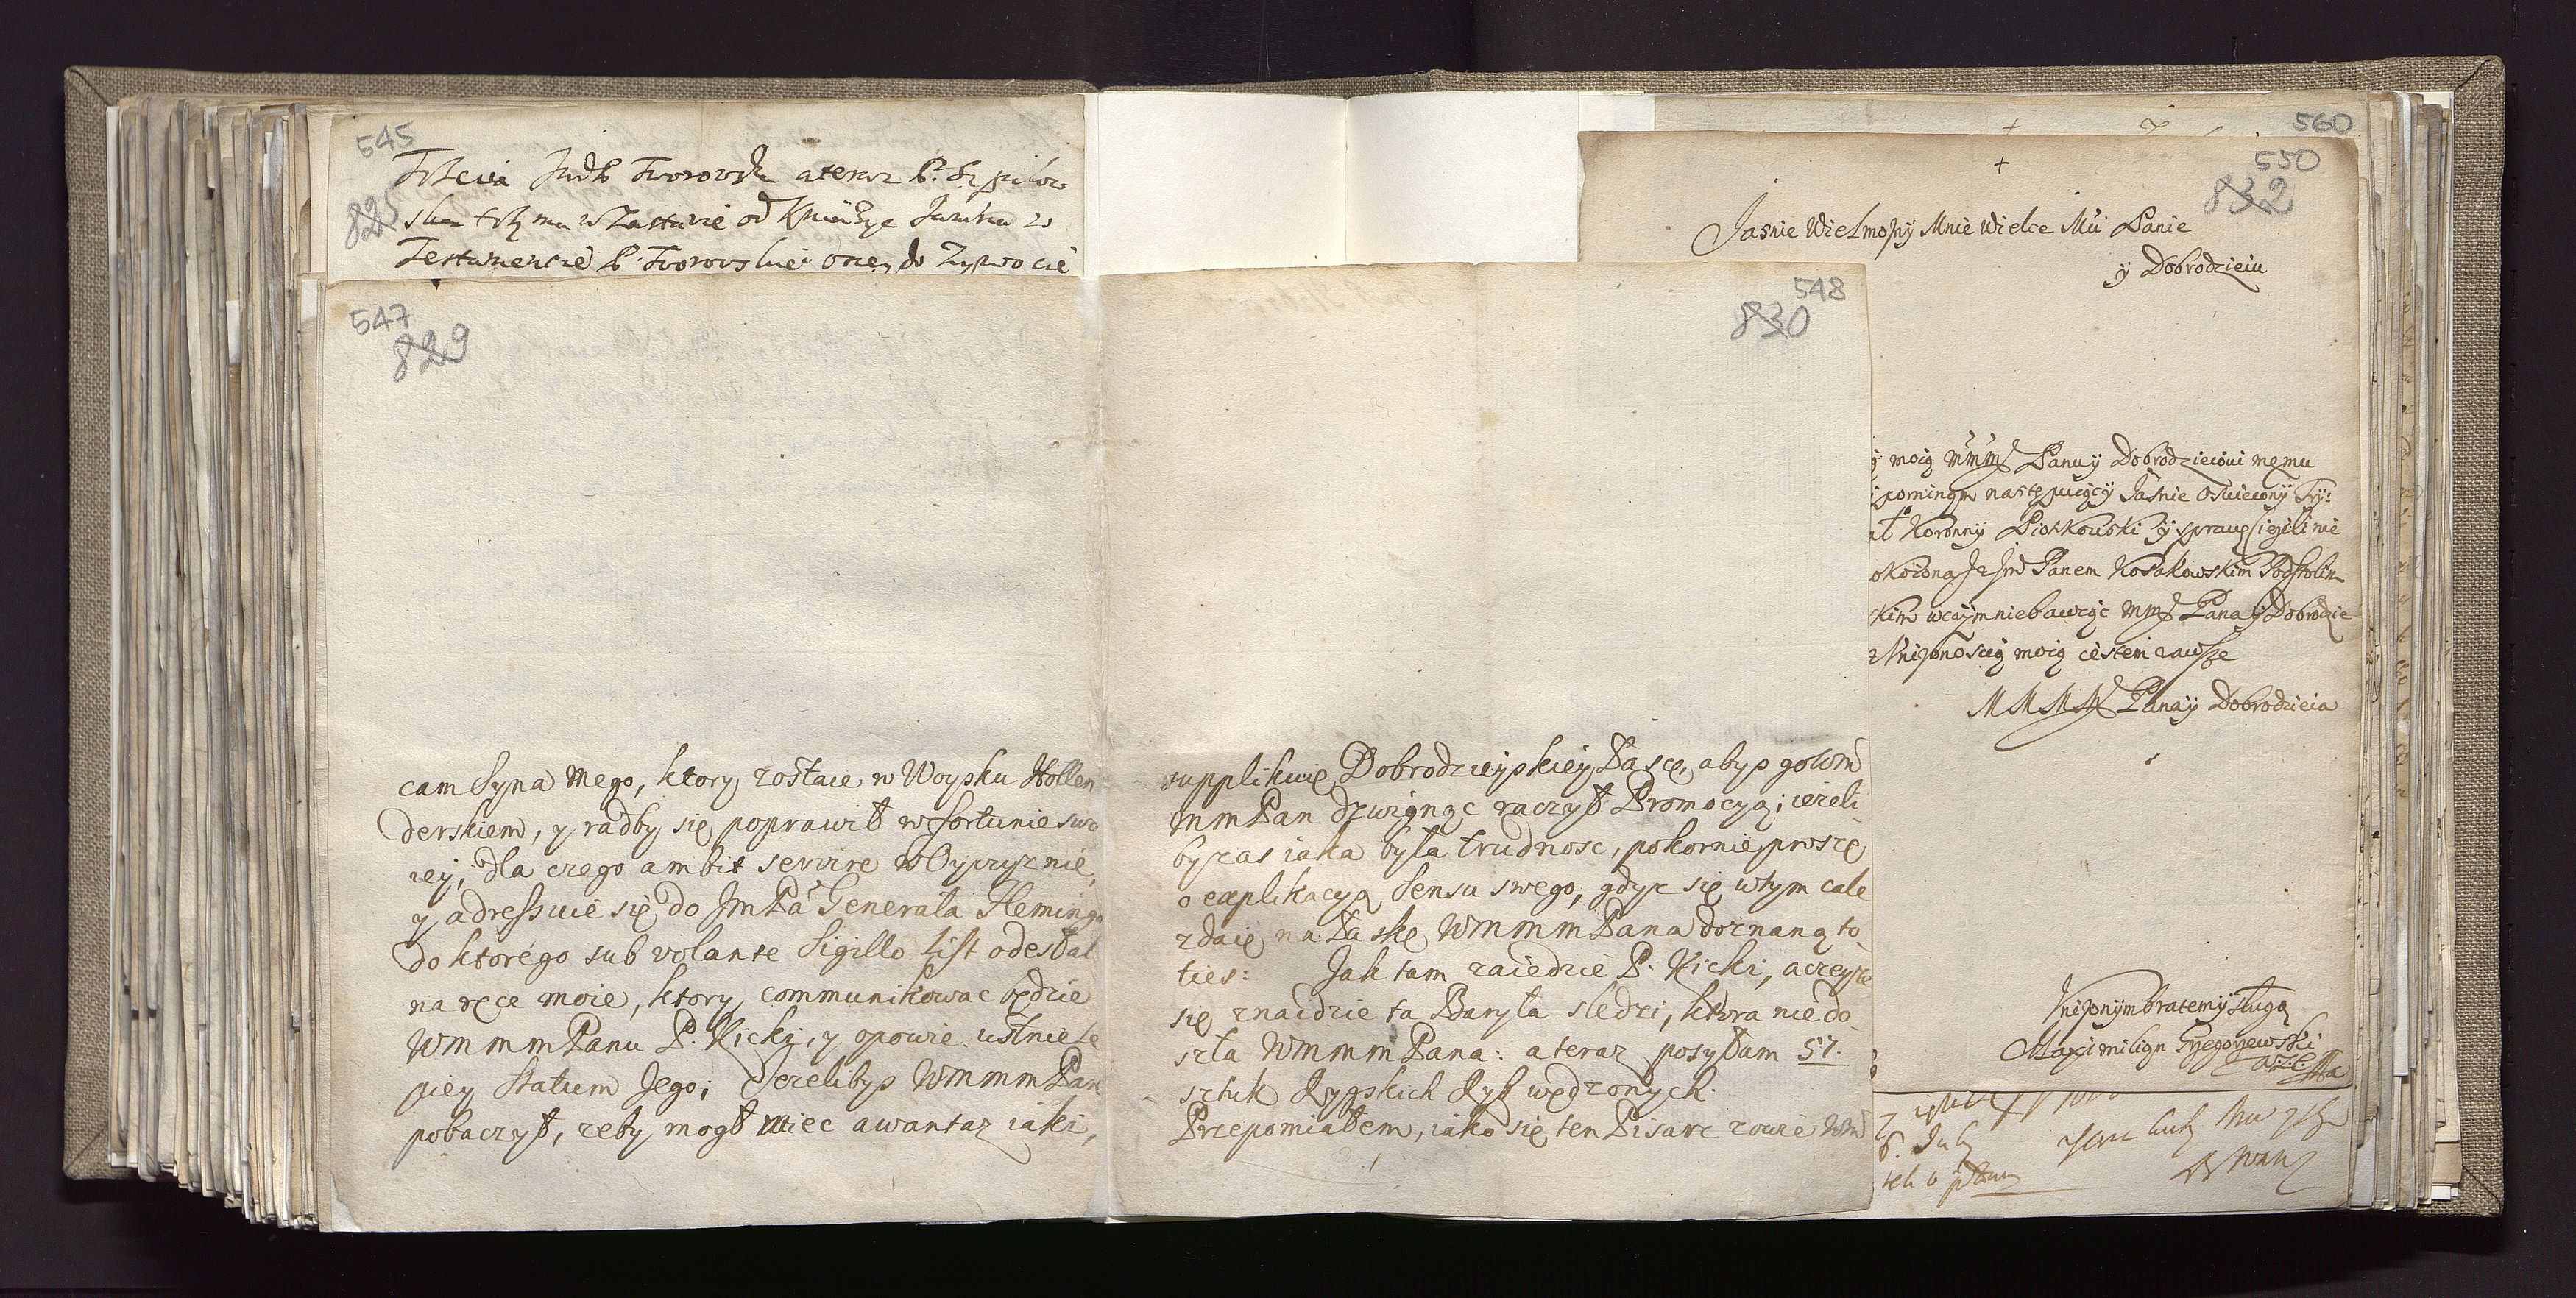 545
825
Testamencie
547
829
cam Syna mego, ktory zostaie w Woysku Hollen
derskiem, y radby się poprawił w fortunie swo
iey, dla czego ambit servire w Oyczyznie,
y adressuie się do Jm Pa Generała Fleminga
do ktorego sub volante Sigillo list odesłał
na ręce moie, ktory communikowac będzie
WmmmPanu P. Kicki, y opowie ustnie le
piey Statum Jego; Jezelibys WmmmPan
pobaczył, zeby mogł miec awantaz iaki,
548
830
supplikuię Dobrodzieyskiey Łasce, abys go Wm
mmPan dzwignąc raczył Promocyą; iezeli
by zas iaka była trudnosc, pokornie proszę
o explikacyą Sensu swego, gdyz się w tym cale
zdaię na Łaskę WmmmPana doznaną to
ties: Jak tam zaiedzie P. Kicki, aczeyze
się znaidzie ta Baryła sledzi, ktora niedo
szła WmmmPana: a teraz posyłam 57.
sztuk Rygskich Ryb wędzonych.
Przepomiałem, iako się ten Pisarz zowie
560
550
832
Jasnie Wielmozny Mnie Wielce Mći Panie
y Dobrodzieiu
moią Panu y Dobrodzieiowi memu
nastepuiący Jasnie Oswiecony Try:
ał Koronny Piotrkowski y sprawę iezeli nie
okoiona Panem Kossakowskim Podstolim
kim wczym niebawiąc Pana y Dobrodzie
Unizonoscią moią iestem zawsze
Pana y Dobrodzieia
Unizonym bratem y sługą
Maximilian